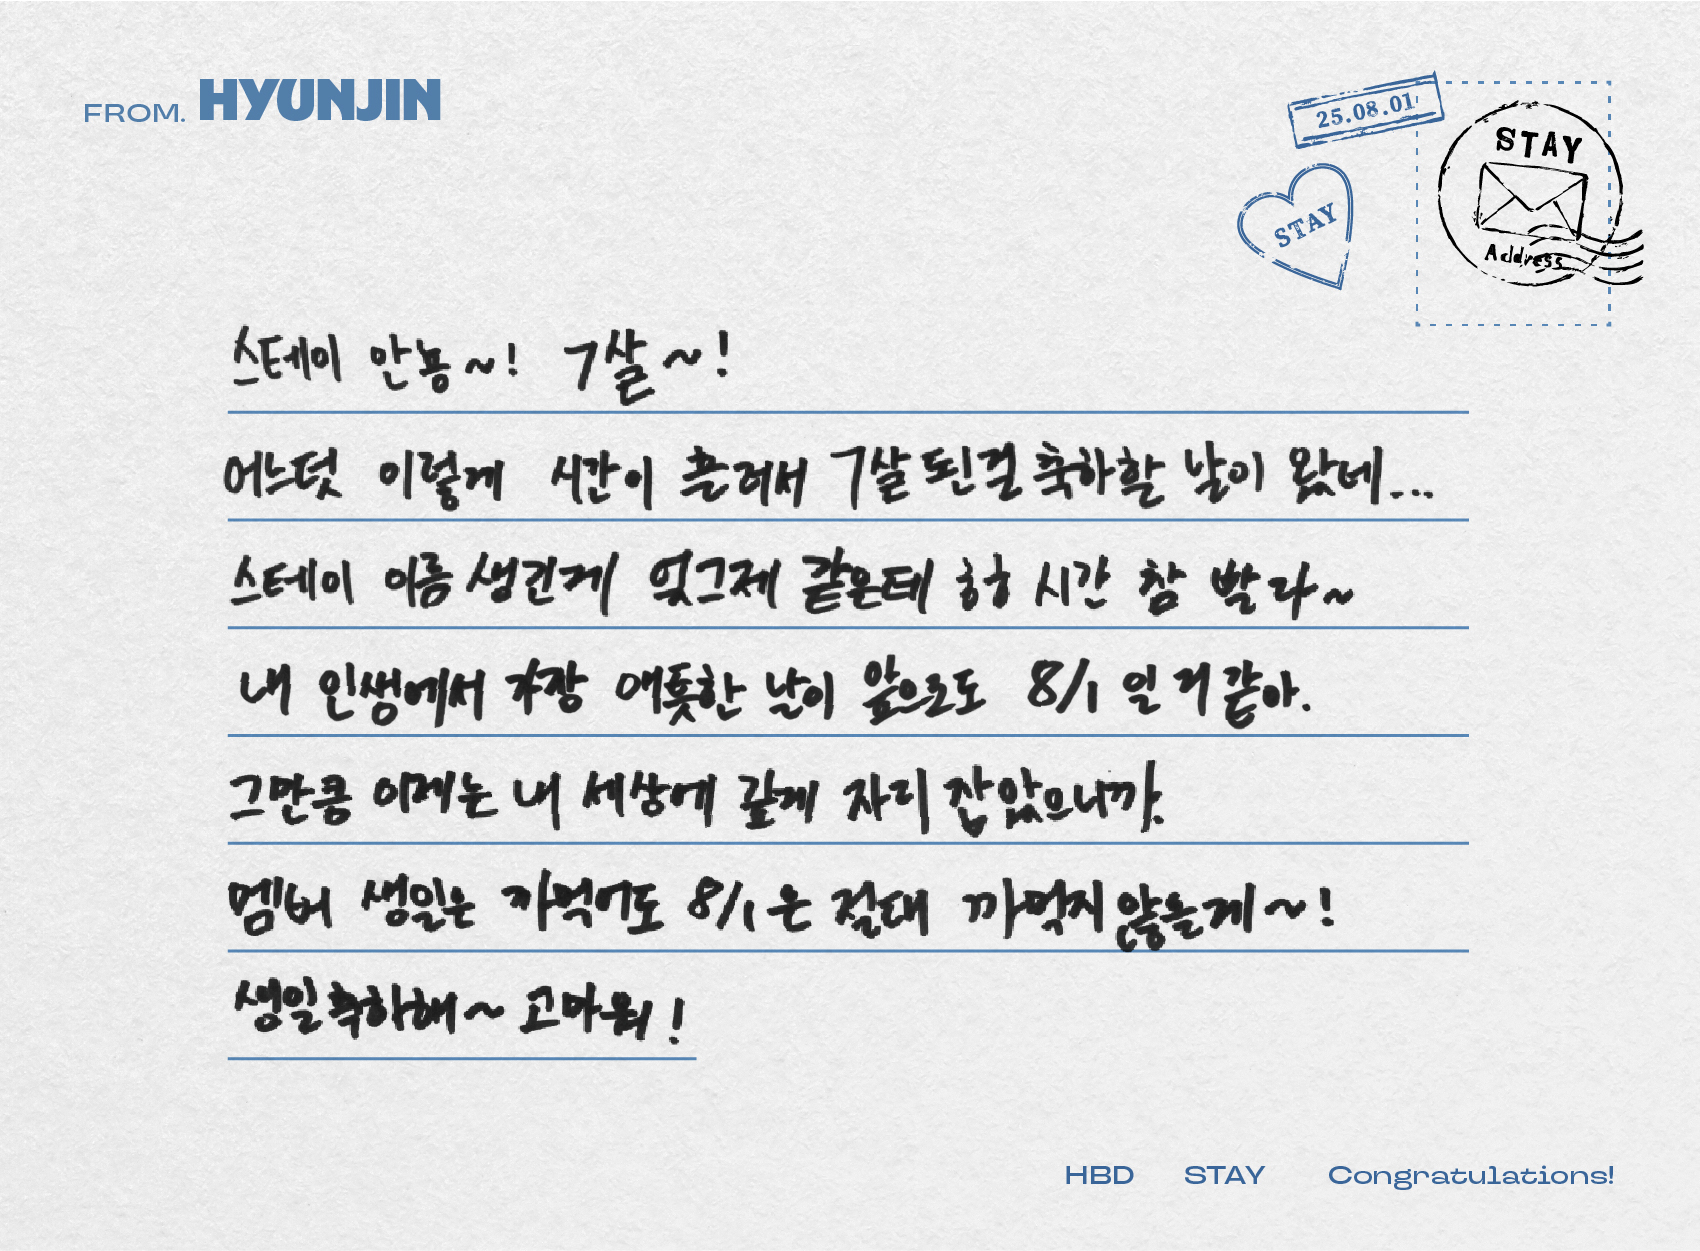 FROM. HYUNJIN
25.08.01
STAY
STAY
Address
스테이 안뇽~! 7살~!
어느덧 이렇게 시간이 흘러서 7살 된걸 축하할 날이 왔네...
스테이 이름 생긴게 엊그제 같은데 하하 시간 참 빨라~
내 인생에서 가장 애틋한 날이 앞으로도 8/1 일 거 같아.
그만큼 이제는 내 세상에 깊게 자리 잡았으니까.
멤버 생일은 까먹어도 8/1은 절대 까먹지 않을게~!
생일축하해~ 고마워!
HBD STAY Congratulations!